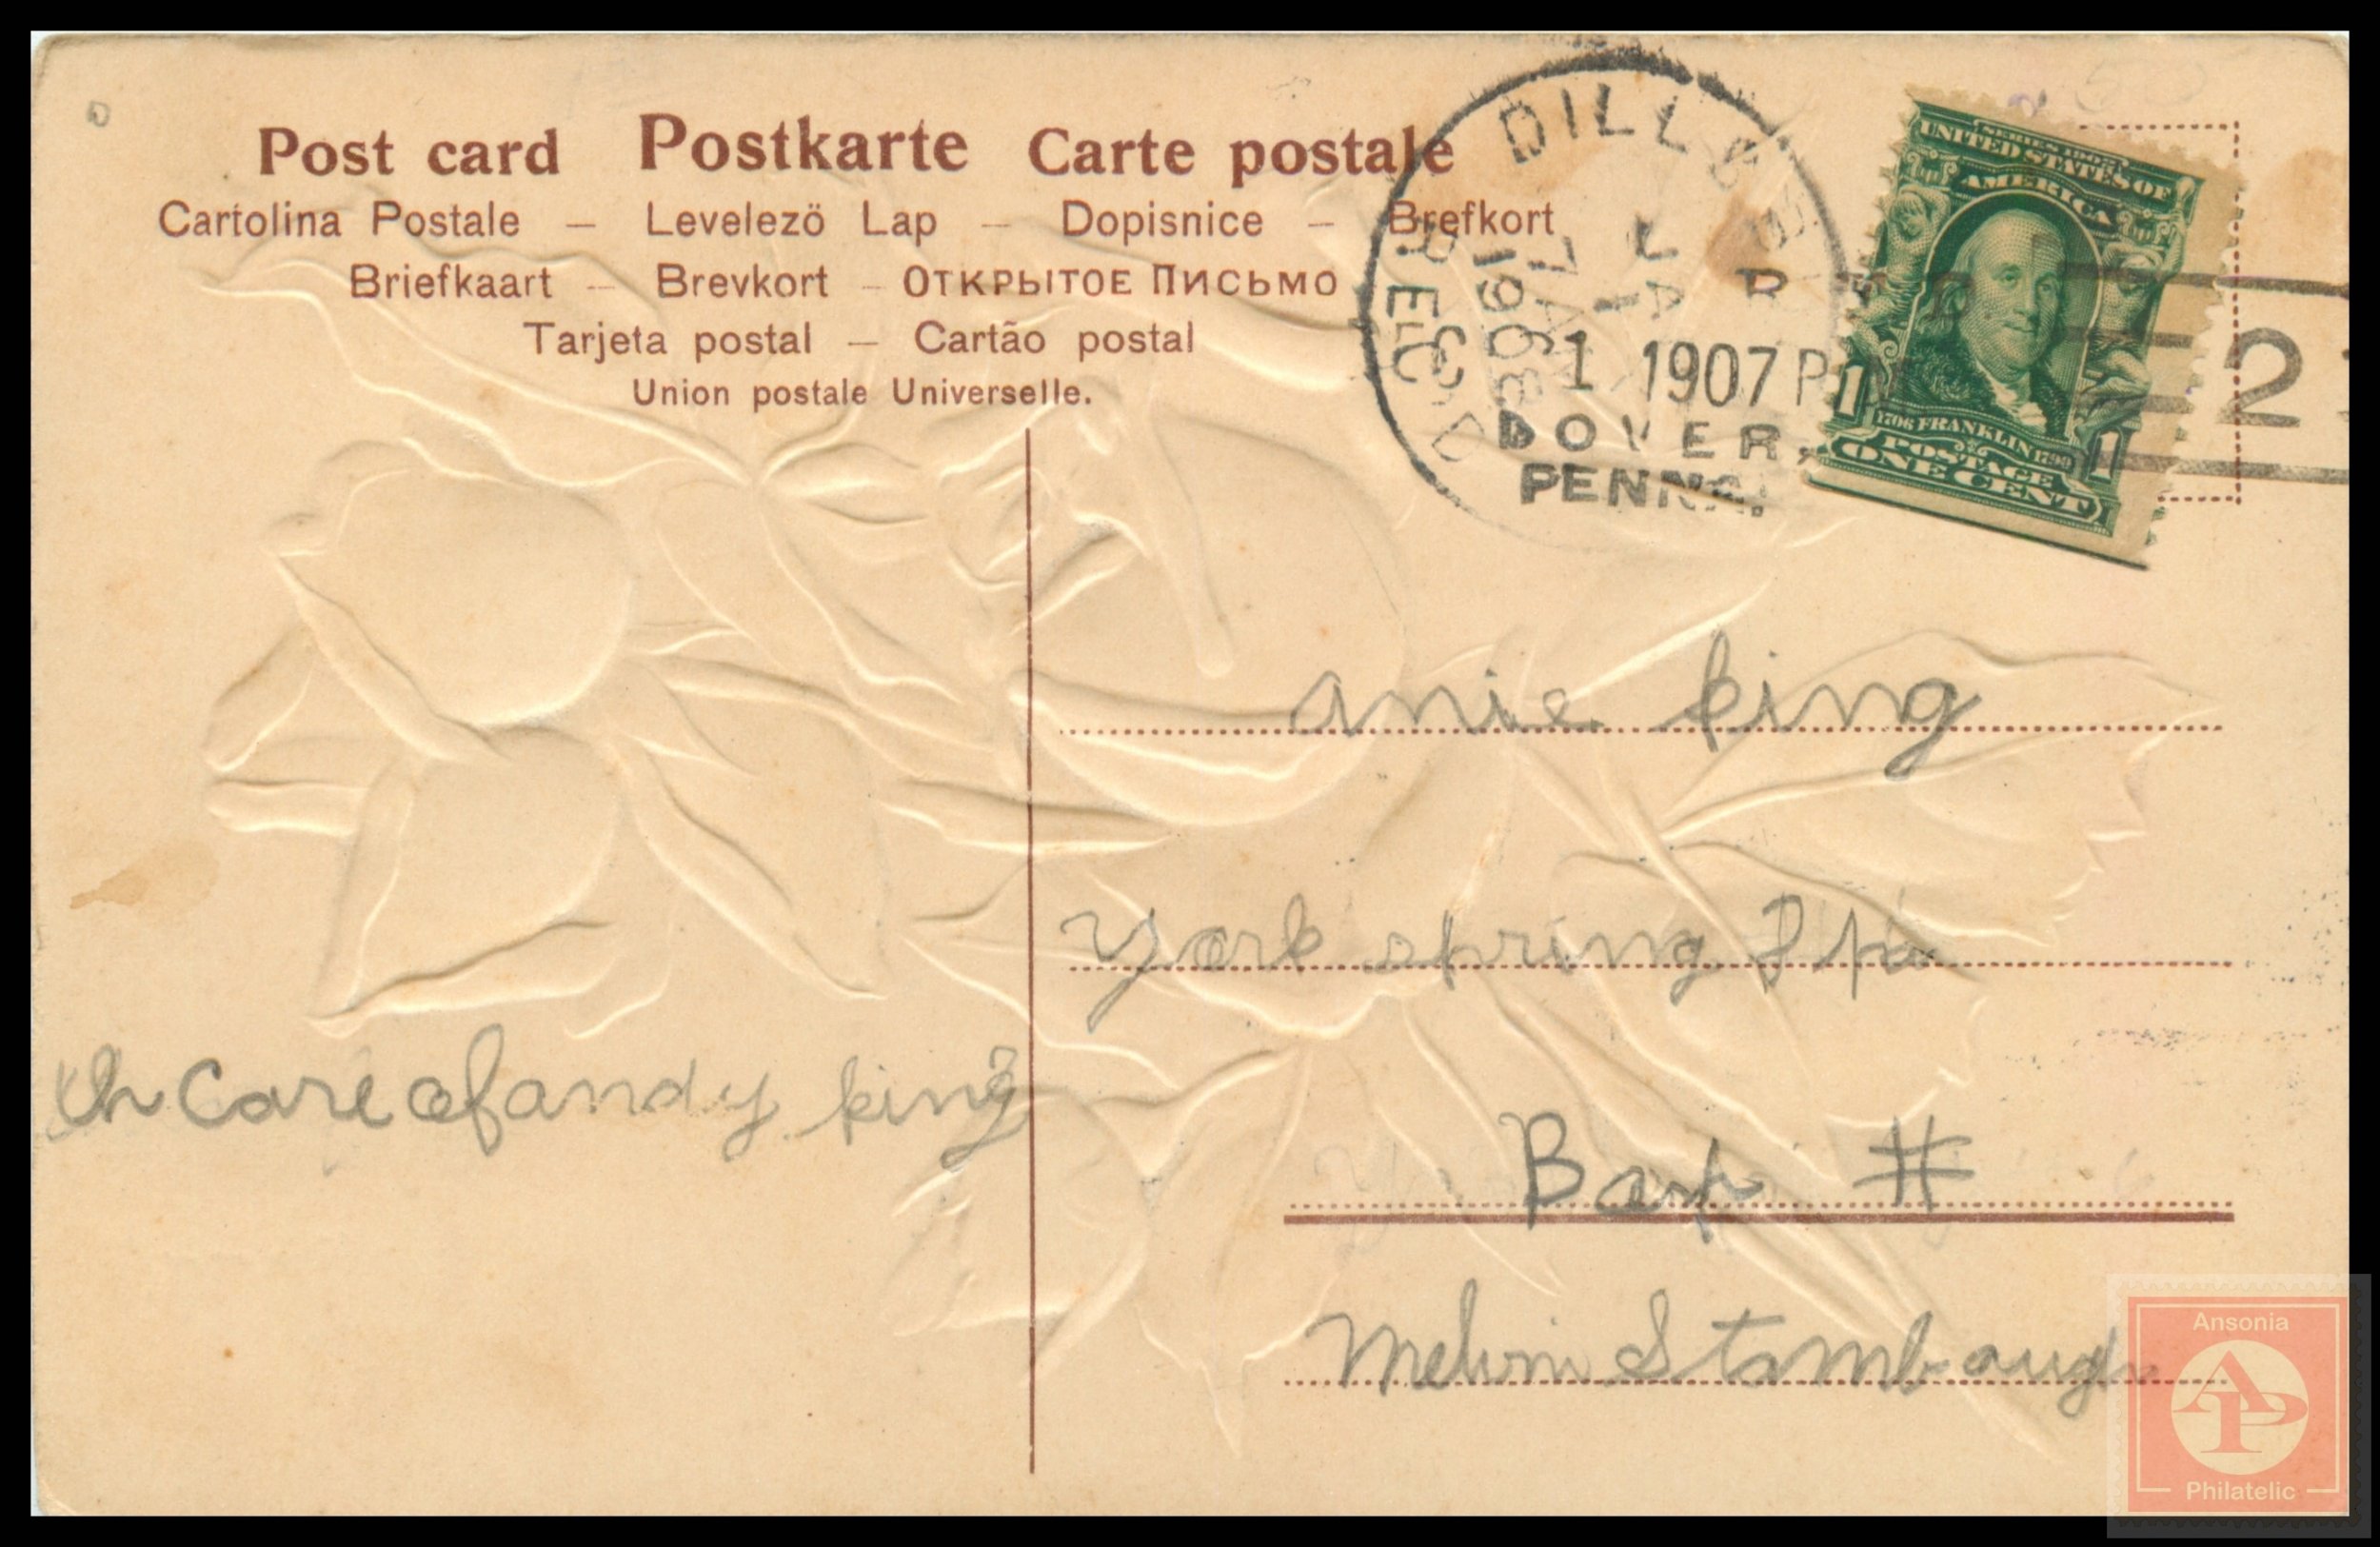 Post card Postkarte Carte postale
Cartolina Postale – Levelezö Lap – Dopisnice – Brefkort
Briefkaart – Brevkort – Открытое Письмо
Tarjeta postal – Cartão postal
Union postale Universelle.
DILLS
JA
1
1908
REC'D
1 1907 P
DOVER,
PENNA.
2
SERIES 1902
UNITED STATES OF
AMERICA
1706 FRANKLIN 1790
1 1
POSTAGE
ONE CENT
anie king
york spring
th Care of andy king
#
Melvin Stambaugh
Ansonia
AP
Philatelic